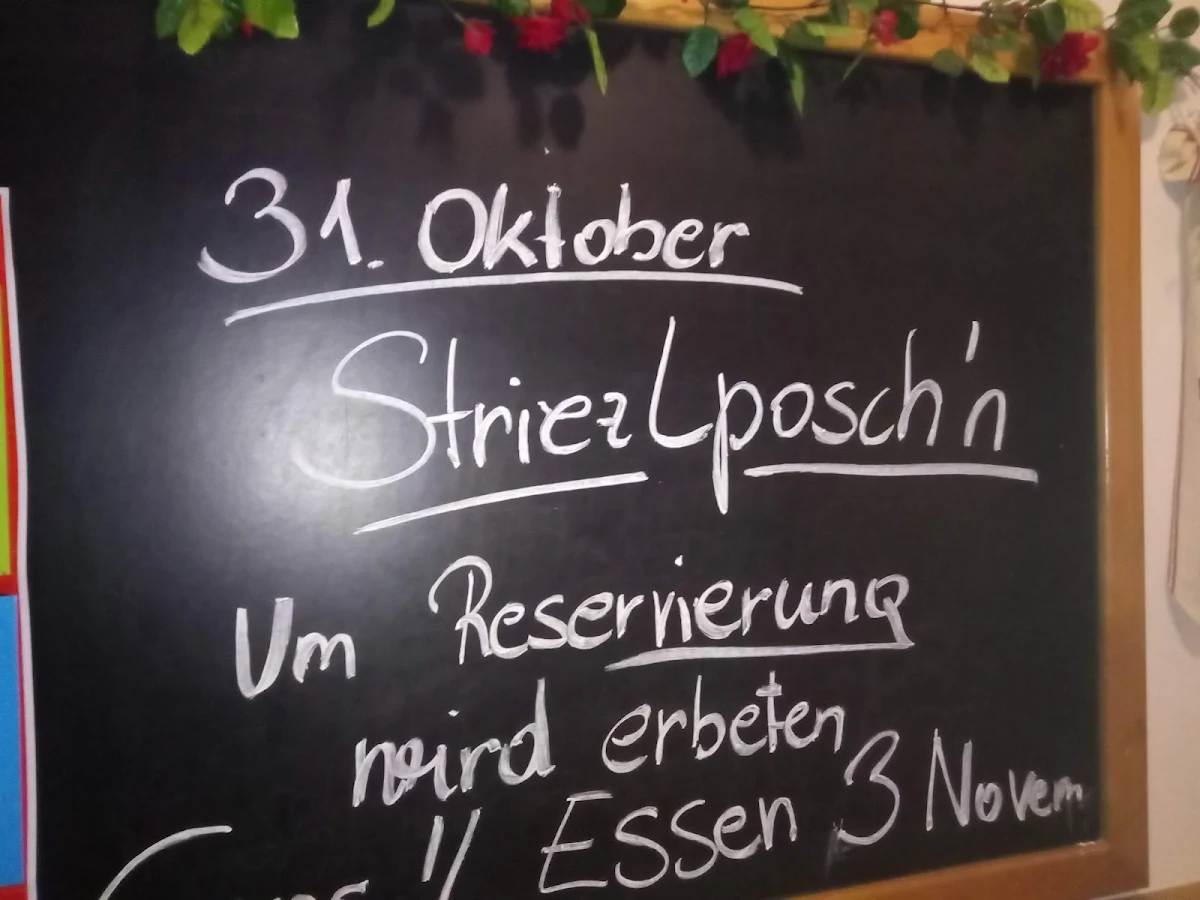 31. Oktober
Striezlposch'n
Um Reservierung
wird erbeten
Essen 3 Novem